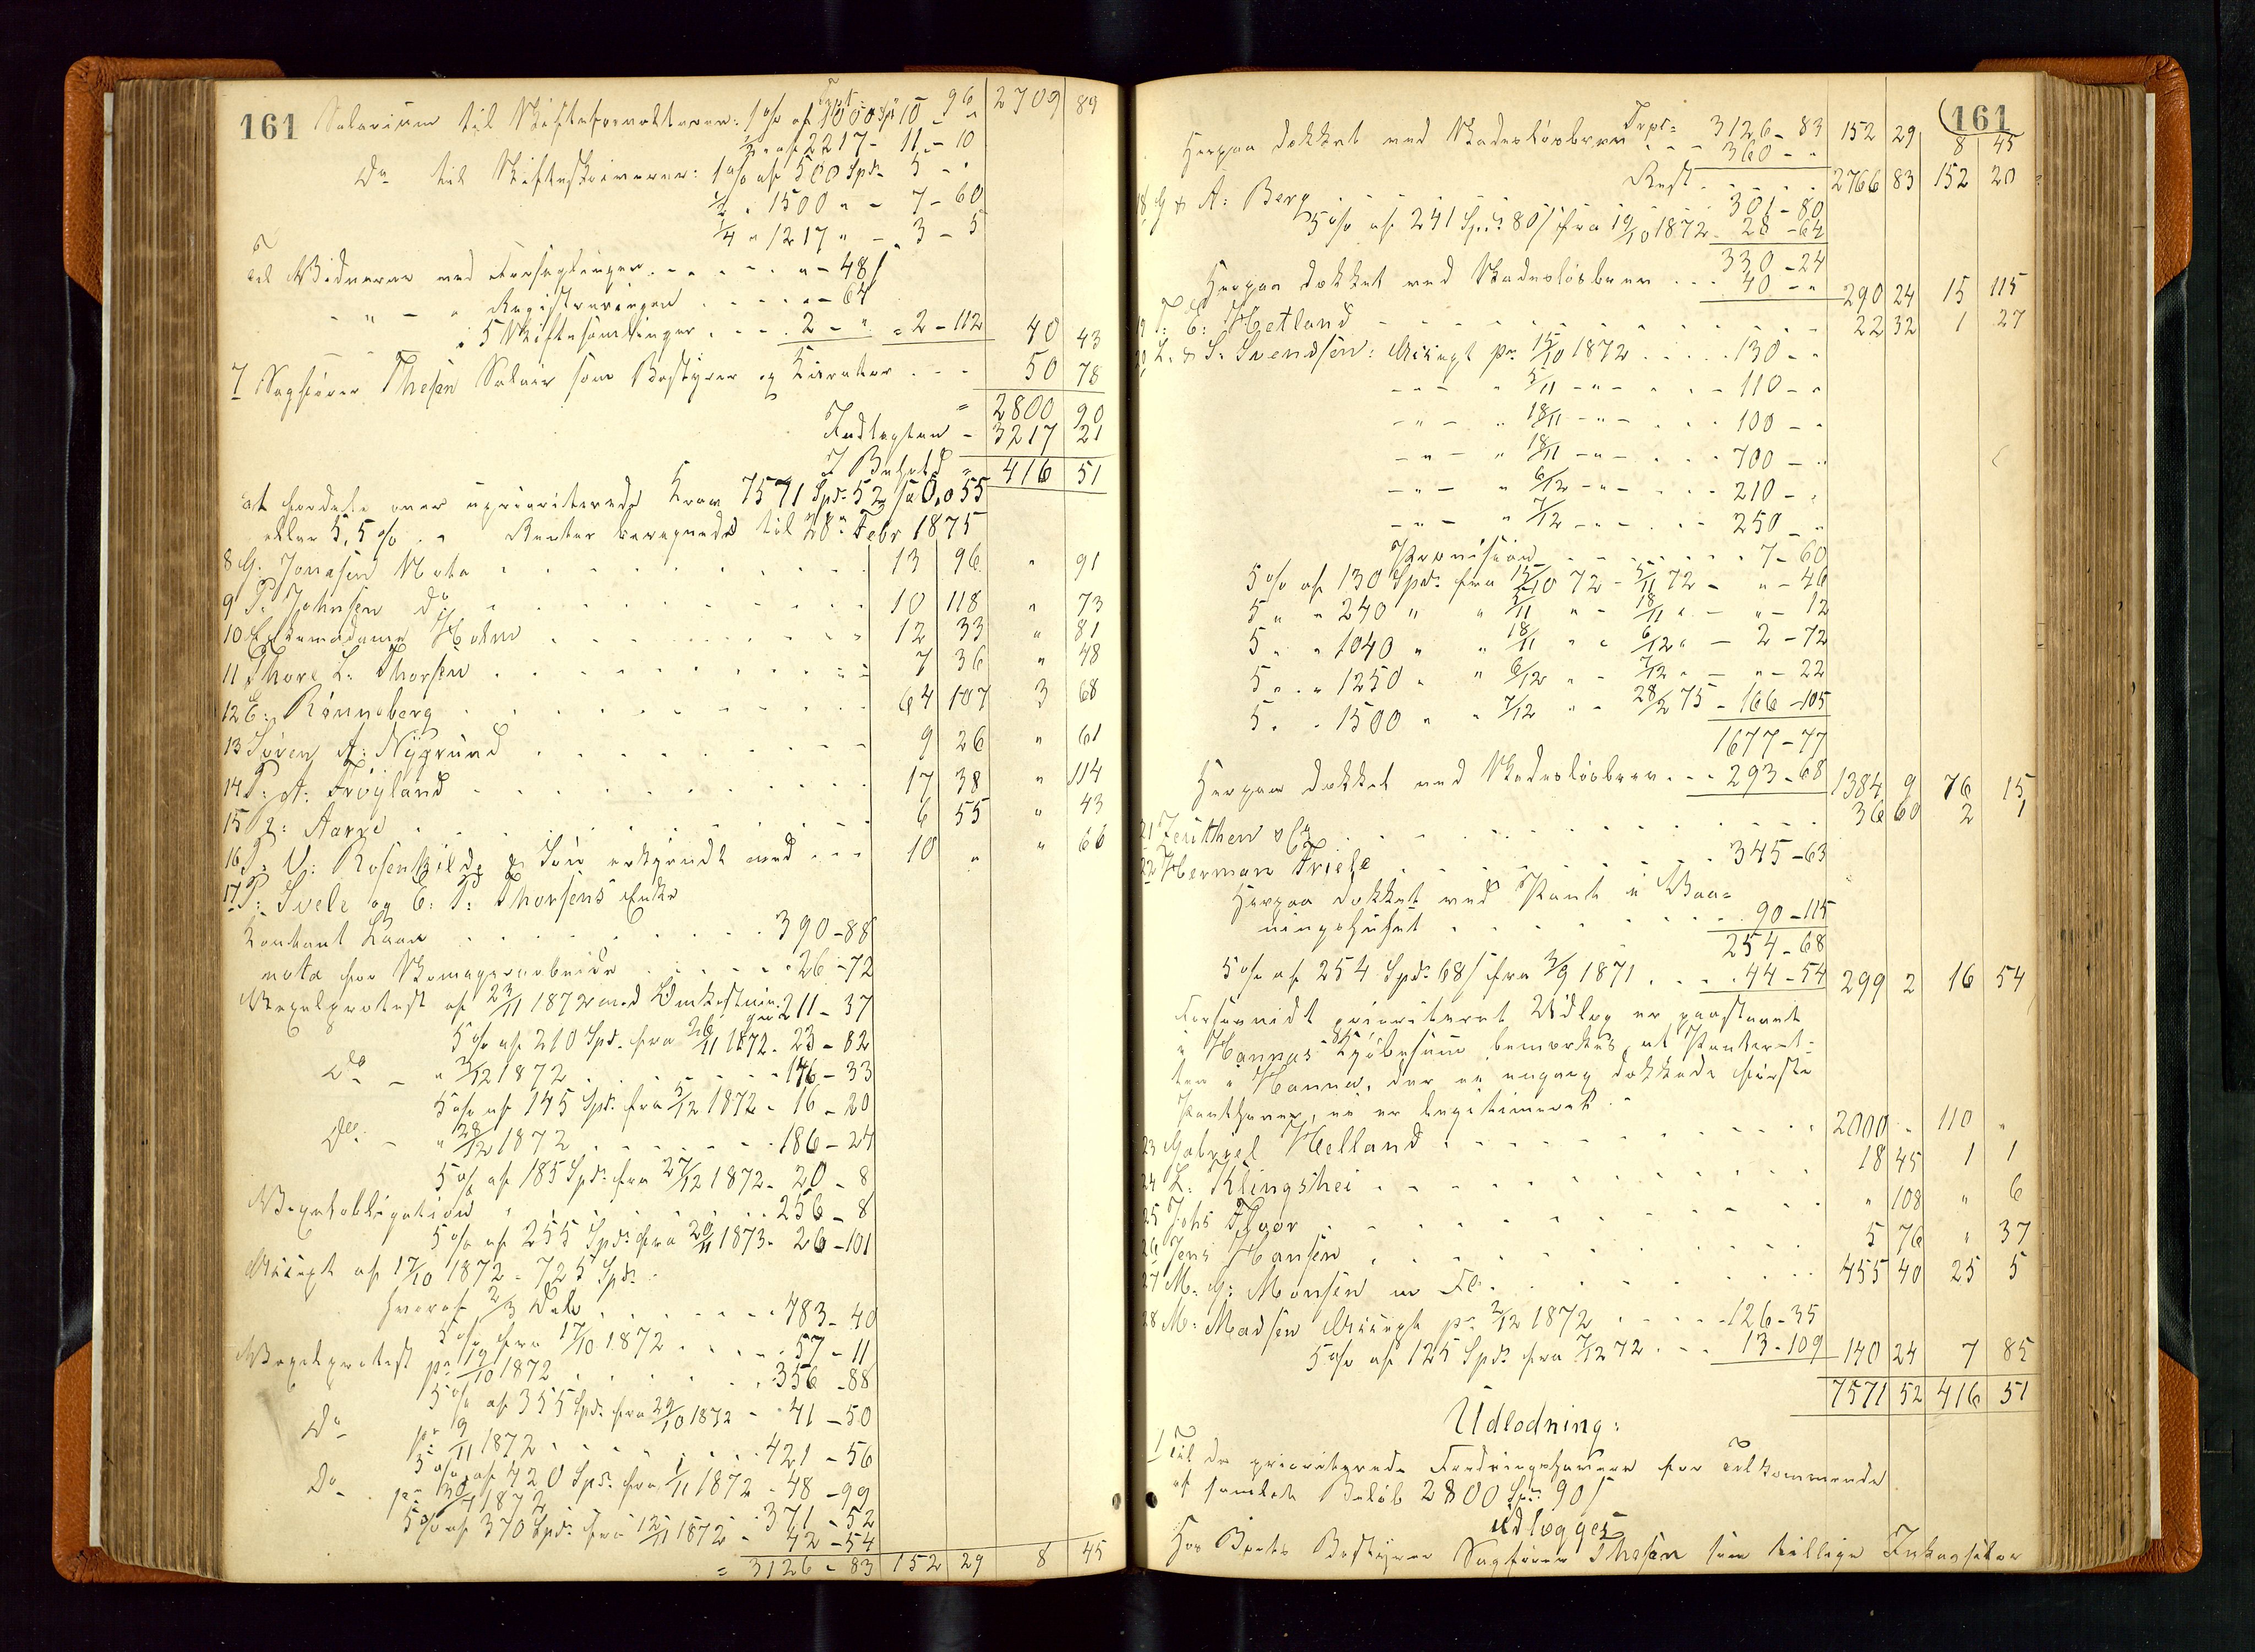 161
Transp: 96 2709 89
Salarium til Skifteforvalteren: 1 % af 1000 Sp 10 - "
½ " af 2217 - 11 - 10
Do til Skifteskriveren: 1 % af 500 Spd - 5 - "
½ " 1500 " - 7 - 60
¼ " 1217 " - 3 - 5
Til Vidnerne ved Forseglingen . . . . " - 48 ſ
- " - " Registreringen . . . . " - 64
" 5 Skiftesamlinger . . . 2 - " = 2 - 112 40 43
7 Sagfører Thesen Salair som Bestyrer og Kurator . . . 50 78
= 2800 90
Indtægten - 3217 21
I Behold = 416 51
at fordele over uprioriterede Krav 7571 Spd 52 ſ a 0,055
eller 5,5 % . " Renter beregnede til 28de Febr 1875
8 G. Jonasen Nota . . . 13 96 " 91
9 P. Johnsen do . . . 10 118 " 73
10 Enkemadame Holm . . . 12 33 " 81
11 Thore L. Thorsen . . . 7 36 " 48
12 E. Rønneberg . . . 64 107 3 68
13 Søren A. Nygrund . . . 9 26 " 61
14 P. A. Frøyland . . . 17 38 " 114
15 L: Aarre . . . 6 55 " 43
16 P. V: Rosenkilde & Søn erkjendt med . . . 10 " " 66
17 P: Svele og E. P: Thorsens Enke
Kontant Laan . . . 390 - 88
nota for Skomagerarbeide . . . 26 - 72
Vexelprotest af 23/11 1872 med Omkostninger 211 - 37
5 % af 210 Spd. fra 26/11 1872 - 23 - 82
Do - " 2/12 1872 . . . 146 - 33
5 % af 145 Spd. fra 5/12 1872 - 16 - 20
Do - " 28/12 1872 . . . 186 - 24
5 % af 185 Spd. fra 27/12 1872 - 20 - 8
Vexelobligation . . . 256 - 8
5 % af 255 Spd. fra 20/11 1873 - 26 - 101
Accept af 17/10 1872 - 725 Spd.
hvoraf 2/3 Dele . . . 483 - 40
5 % fra 17/10 1872 . . . 57 - 11
Vexelprotest pr 19/10 1872 . . . 356 - 88
5 % af 355 Spd. fra 29/10 1872 - 41 - 50
Do pr 9/11 1872 . . . 421 - 56
5 % af 420 Spd. fra 1/11 1872 - 48 - 99
Do pr 30/11 1872 . . . 371 - 52
5 % af 370 Spd. fra 12/11 1872 - 42 - 54
= 3126 - 83 152 29 8 45
161
Trpt = 3126 - 83 152 29 8 45
Herpaa dækket ved Skadesløsbrev . . . 360 - "
Rest . . . 2766 83 152 20
18 G & A: Berg . . . 301 - 80
5 % af 241 Spd. 80 ſ fra 19/10 1872 - 28 - 64
330 - 24
Herpaa dækket ved Skadesløsbrev . . . 40 - " 290 24 15 115
19 T: E: Hetland . . . 22 32 1 27
20 L. & S. Svendsen: Accept pr 15/10 1872 . . . 130 - "
- " - " 5/11 - " - . . 110 - "
- " - " 18/11 - " - . . 100 - "
- " - " 18/11 - " - . . 700 - "
- " - " 6/12 - " - . . 210 - "
- " - " 7/12 - " - . . 250 - "
Provision . . . 7 - 60
5 % af 130 Spd. fra 15/10 72 - 5/11 72 - " - 46
5 " " 240 " " 5/11 " - 18/11 " - " - 12
5 " " 1040 " " 18/11 " " 6/12 " - 2 - 72
5 " " 1250 " " 6/12 " - 7/12 " - " - 22
5 " " 1500 " " 7/12 " - 28/2 75 - 166 - 105
1677 - 77
Herpaa dækket ved Skadesløsbrev . . . 293 - 68 1384 9 76 15
21 Zeuthen & Co . . . 36 60 2 1
22 Herman Friele . . . 345 - 63
Herpaa dækket ved Pant i Vaa=
ningshuset . . . 90 - 115
254 - 68
5 % af 254 Spd. 68 ſ fra 3/9 1871 . . . 44 - 54 299 2 16 54
Forsaavidt prioriteret Udlæg er paastaaet
i Hannas Kjøbesum bemærkes, at Panteret=
ten i Hanna, der ei engang dækkede første
Panthaver, ei er legitimeret . - 2000 " 110 "
23 Gabriel Helland . . . 18 45 1 1
24 L: Klingshei . . . " 108 " 6
25 Johs Thaar . . . 5 76 " 37
26 Jens Hansen . . . 455 40 25 5
27 M. G: Monsen
28 M: Madsen Accept pr 2/12 1872 . . . 126 - 35
5 % af 125 Spd. fra 7/12 72 . . . 13 - 109 140 24 7 85
7571 52 416 51
Udlodning:
1 Til de prioriterede Fordringshavere for Tilkommende
af samlet Beløb 2800 Spd. 90 ſ
udlægges
Hos Boets Bestyrer Sagfører Thesen som tillige Inkassator